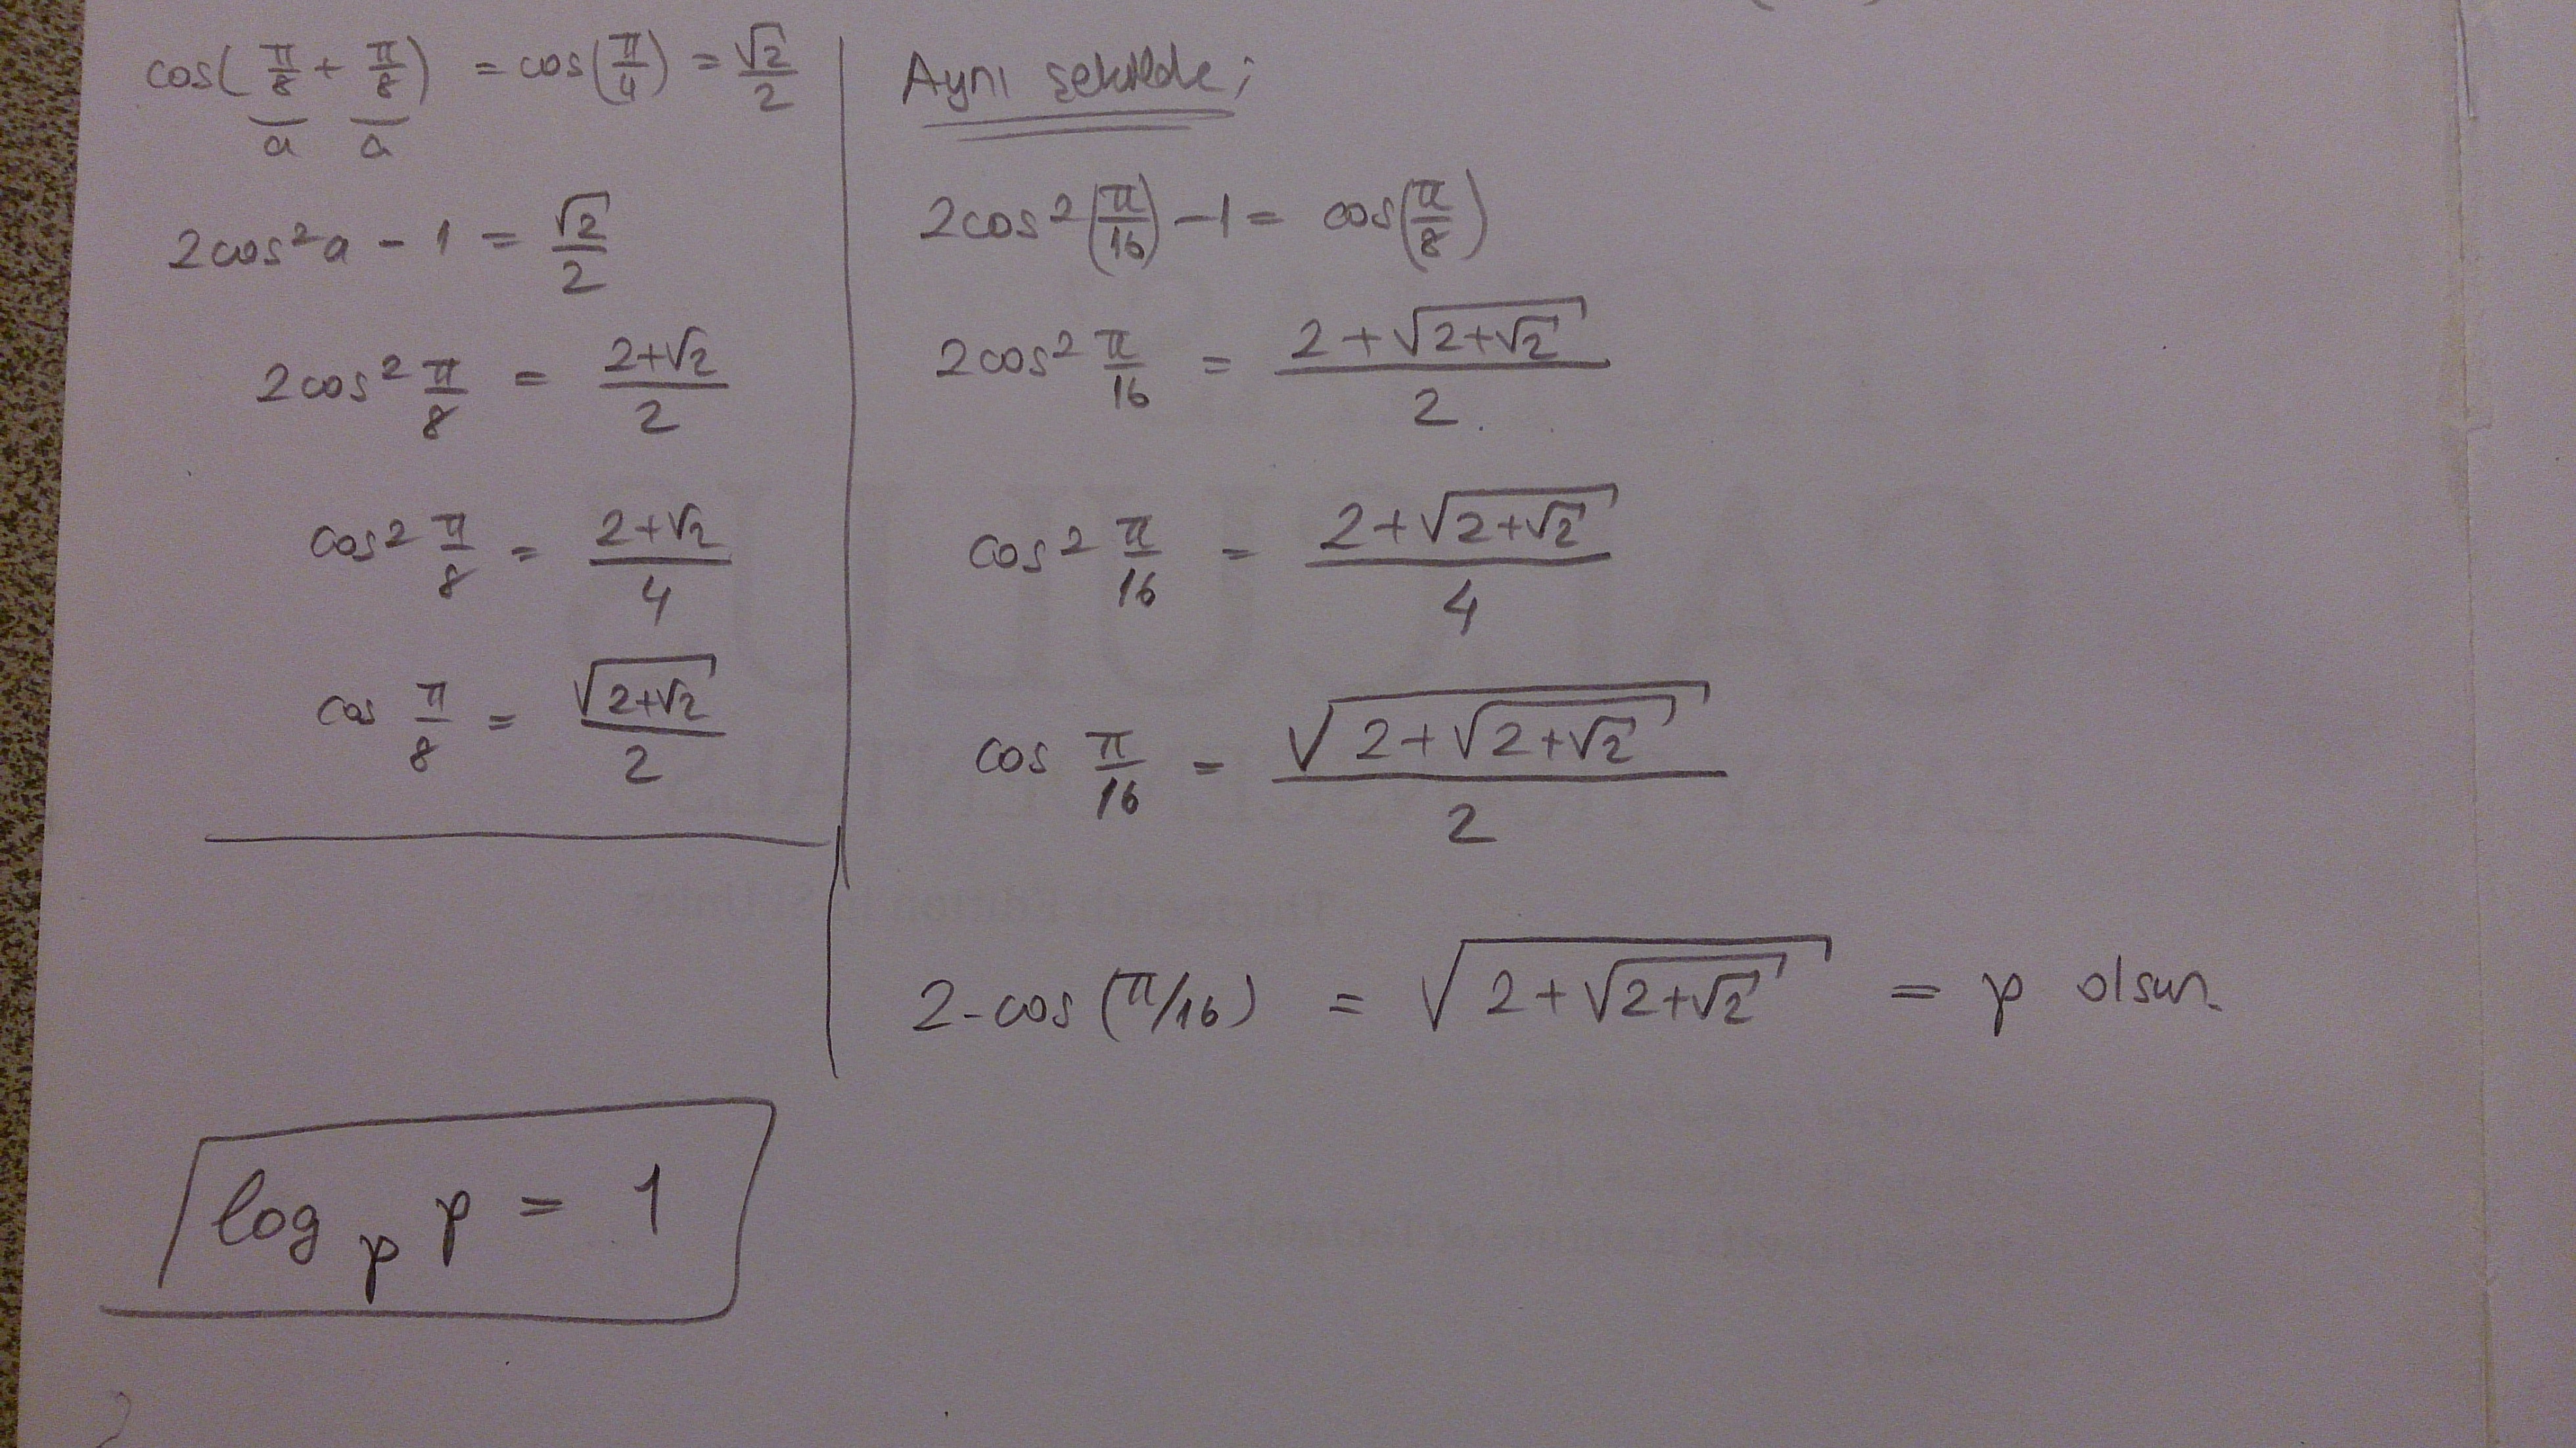 cos(π/8 + π/8) = cos(π/4) = √2/2
a a
2cos²a - 1 = √2/2
2cos² π/8 = (2+√2)/2
cos² π/8 = (2+√2)/4
cos π/8 = √(2+√2)/2
Aynı şekilde;
2cos²(π/16) - 1 = cos(π/8)
2cos² π/16 = (2+√(2+√2))/2
cos² π/16 = (2+√(2+√2))/4
cos π/16 = √(2+√(2+√2))/2
2-cos(π/16) = √(2+√(2+√2)) = p olsun.
log_p p = 1